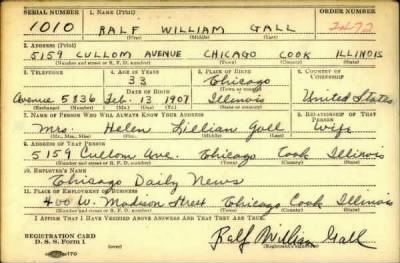 SERIAL NUMBER 1. NAME (Print) ORDER NUMBER
1010 RALF WILLIAM GALL
(First) (Middle) (Last)
2. ADDRESS (Print)
5159 CULLOM AVENUE CHICAGO COOK ILLINOIS
(Number and street or R. F. D. number) (Town) (County) (State)
3. TELEPHONE 4. AGE IN YEARS 5. PLACE OF BIRTH 6. COUNTRY OF CITIZENSHIP
33 Chicago
(Town or county)
DATE OF BIRTH
Avenue 5836 Feb. 13 1907 Illinois United States
(Exchange) (Number) (Mo.) (Day) (Yr.) (State or country)
7. NAME OF PERSON WHO WILL ALWAYS KNOW YOUR ADDRESS 8. RELATIONSHIP OF THAT PERSON
Mrs. Helen Lillian Gall Wife
(Mr., Mrs., Miss) (First) (Middle) (Last)
9. ADDRESS OF THAT PERSON
5159 Cullom Ave. Chicago Cook Illinois
(Number and street or R. F. D. number) (Town) (County) (State)
10. EMPLOYER'S NAME
Chicago Daily News
11. PLACE OF EMPLOYMENT OR BUSINESS
400 W. Madison Street Chicago Cook Illinois
(Number and street or R. F. D. number) (Town) (County) (State)
I AFFIRM THAT I HAVE VERIFIED ABOVE ANSWERS AND THAT THEY ARE TRUE.
REGISTRATION CARD
D. S. S. Form 1
Ralf William Gall
(Registrant's signature)